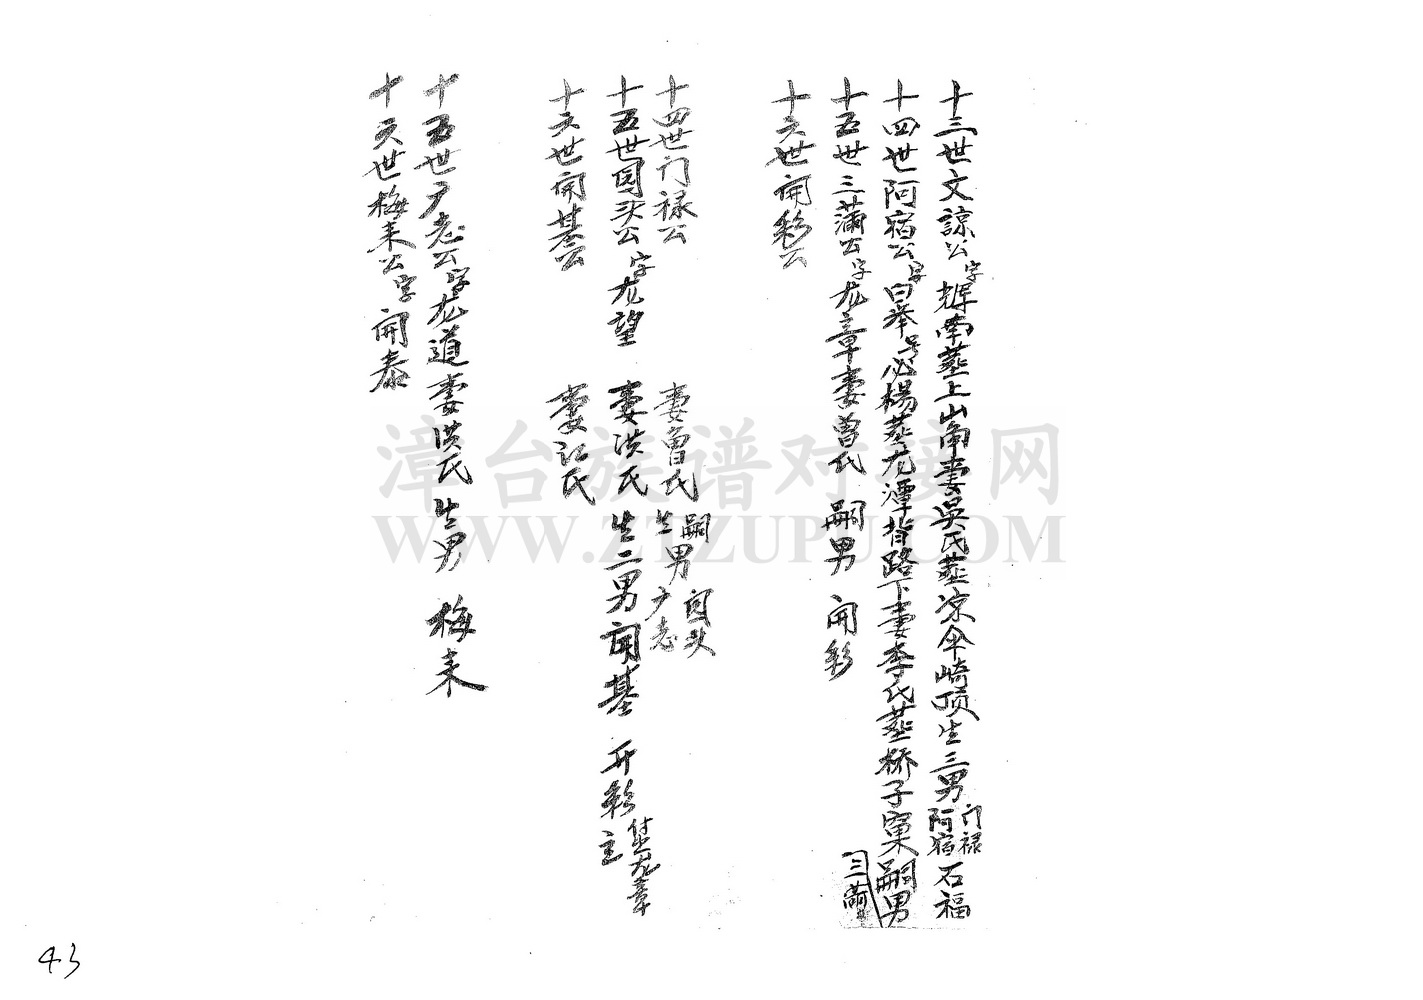 十三世文諒公字辉南葬上山角妻吳氏葬凉伞崎顶生三男门禄阿宿石福
十四世阿宿公字曰举号必楊葬龙潭背路下妻李氏葬桥子窠嗣男三蒲
十五世三蒲公字龙章妻曾氏 嗣男 開彩
十六世開彩公
十四世门禄公 妻曾氏 生嗣男 尹志 囩头
十五世囩头公字龙望 妻洪氏 生二男 開基 开彩 龙章
十六世開基公 妻江氏
十五世尹志公字龙道妻洪氏 生男 梅耒
十六世梅耒公字開泰
漳台族谱对接网
WWW.ZTZUPU.COM
43